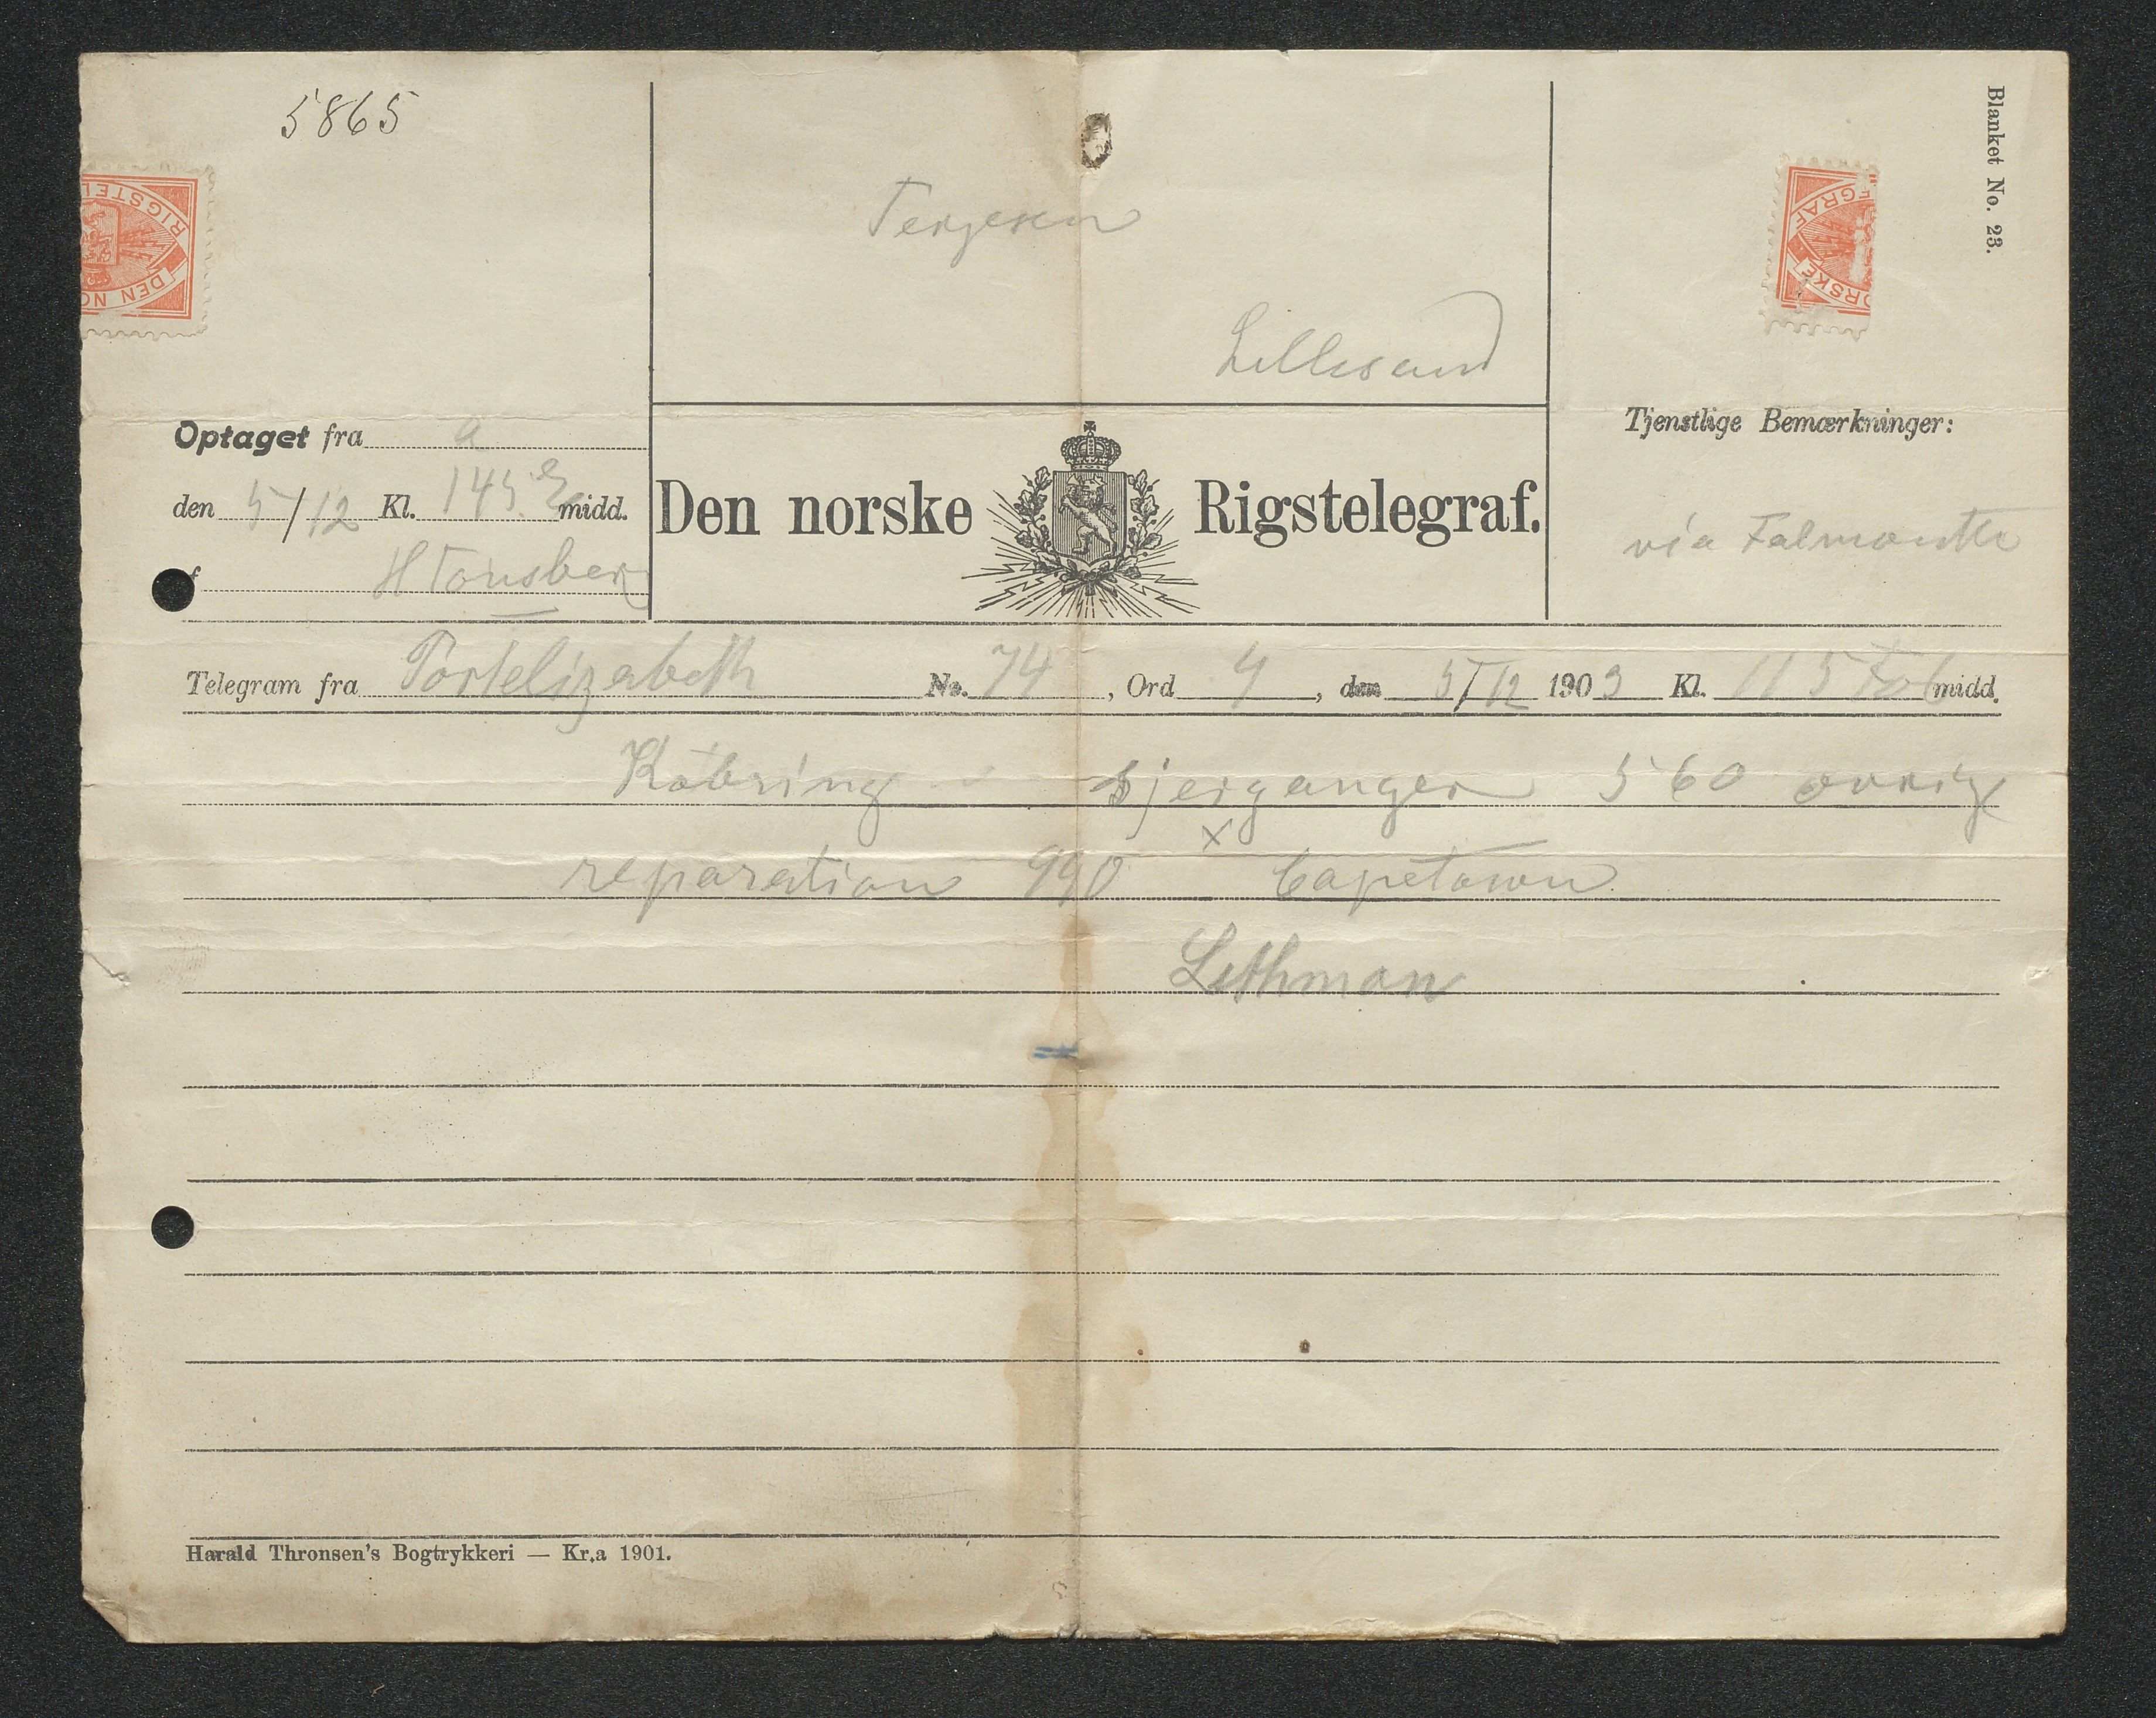 5865
Blanket No. 23.
RIGSTEL
DEN NO
EGRAF
ORSKE
Terjesen
Lillesand
Optaget fra a
den 5/12 Kl. 145 E midd.
H Tönsberg
Den norske Rigstelegraf.
Tjenstlige Bemærkninger:
via Falmouth
Telegram fra Portelizabeth No. 74, Ord 9, den 5/12 1903 Kl. 11 5 Fm midd.
Köbring - bjerganger 560 øvrig
reparation 990 x Capetown
Lethman
Harald Thronsen's Bogtrykkeri — Kr.a 1901.